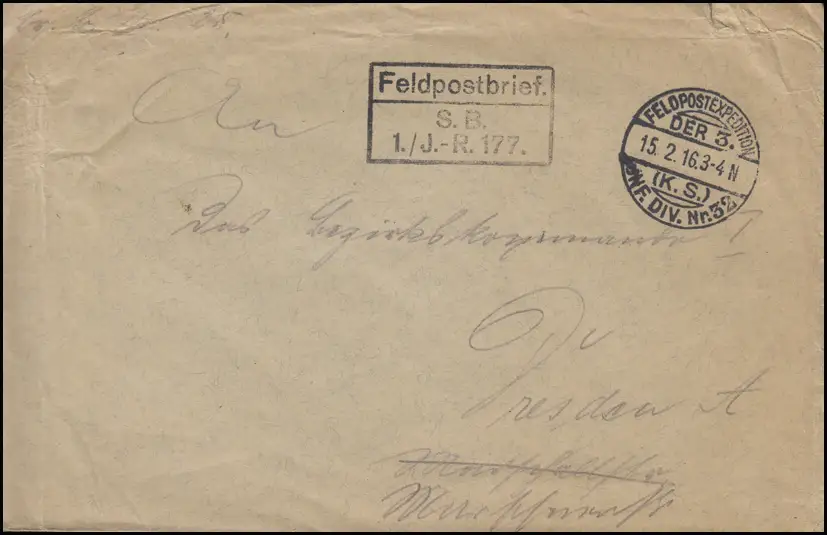 Feldpostbrief.
S. B.
1./J.-R. 177.
FELDPOSTEXPEDITION
DER 3.
15. 2. 16. 3-4 N
(K. S.)
INF. DIV. Nr. 32
An
Das Bezirkskommando I
Dresden A